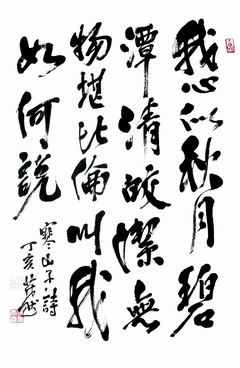 我心似秋月碧
潭清皎潔無
物堪比倫叫我
如何說
寒山子詩
丁亥